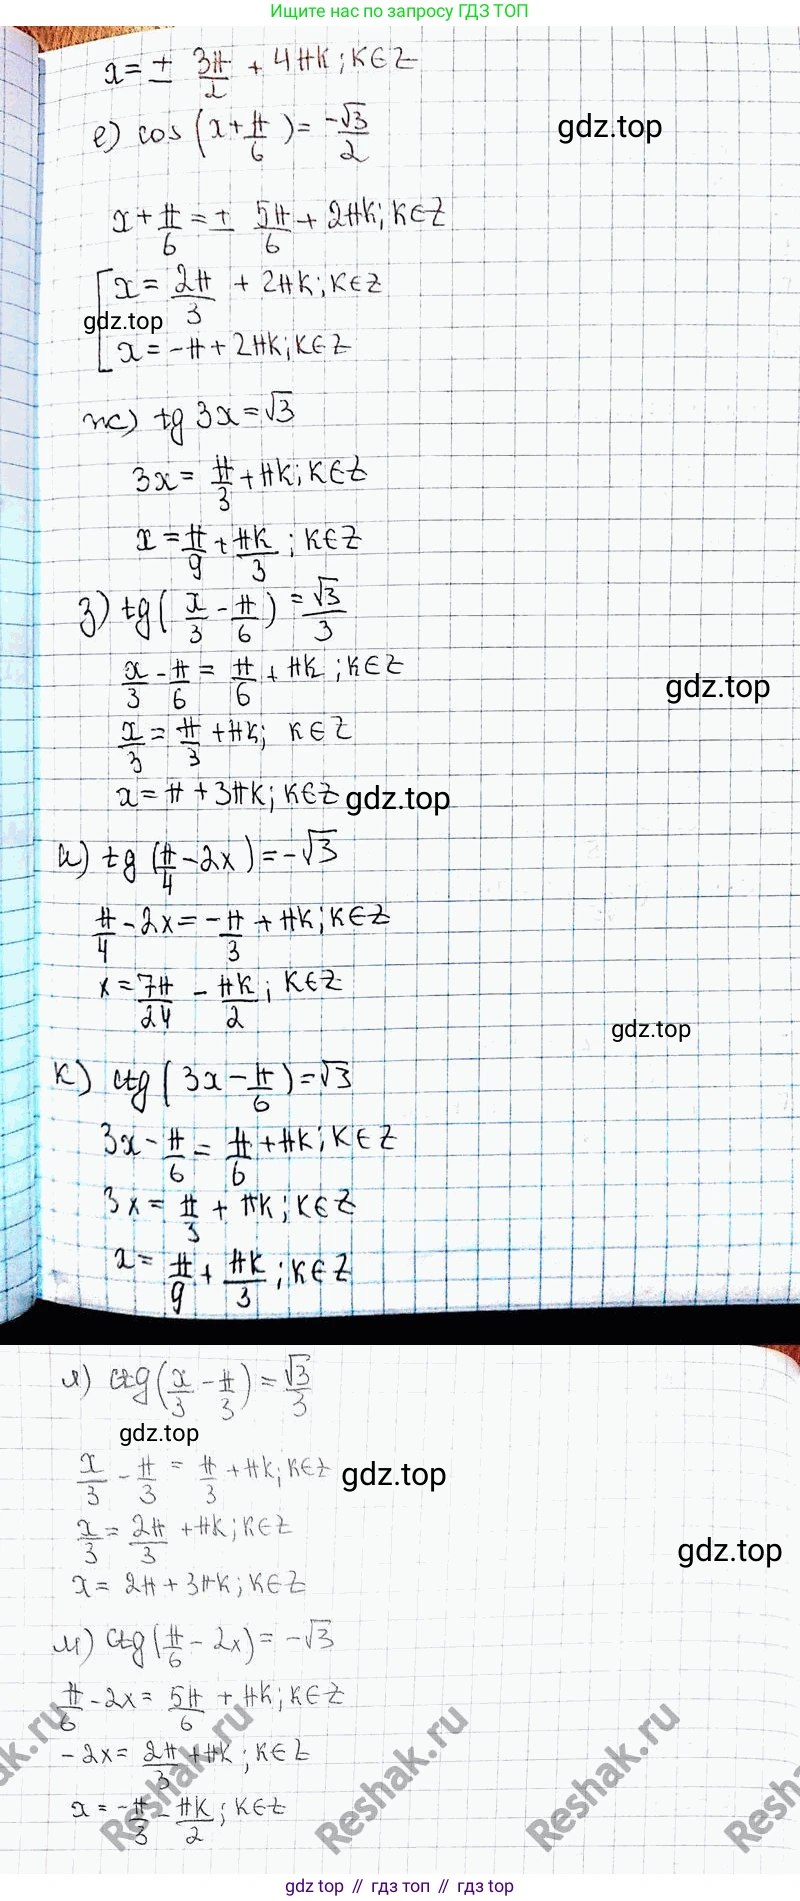 Ищите нас по запросу ГДЗ ТОП
x = ± 3π/2 + 4πK; K∈Z
е) cos(x + π/6) = -√3/2
gdz.top
x + π/6 = ± 5π/6 + 2πK; K∈Z
[x = 2π/3 + 2πK; K∈Z
gdz.top
[x = -π + 2πK; K∈Z
ж) tg 3x = √3
3x = π/3 + πK; K∈Z
x = π/9 + πK/3; K∈Z
з) tg(x/3 - π/6) = √3/3
x/3 - π/6 = π/6 + πK; K∈Z
gdz.top
x/3 = π/3 + πK; K∈Z
x = π + 3πK; K∈Z
gdz.top
и) tg(π/4 - 2x) = -√3
π/4 - 2x = -π/3 + πK; K∈Z
x = 7π/24 - πK/2; K∈Z
gdz.top
к) ctg(3x - π/6) = √3
3x - π/6 = π/6 + πK; K∈Z
3x = π/3 + πK; K∈Z
x = π/9 + πK/3; K∈Z
л) ctg(x/3 - π/3) = √3/3
gdz.top
x/3 - π/3 = π/3 + πK; K∈Z
gdz.top
x/3 = 2π/3 + πK; K∈Z
gdz.top
x = 2π + 3πK; K∈Z
м) ctg(π/6 - 2x) = -√3
π/6 - 2x = 5π/6 + πK; K∈Z
-2x = 2π/3 + πK; K∈Z
x = -π/3 - πK/2; K∈Z
Reshak.ru
Reshak.ru
Reshak.ru
gdz.top // гдз топ // gdz.top